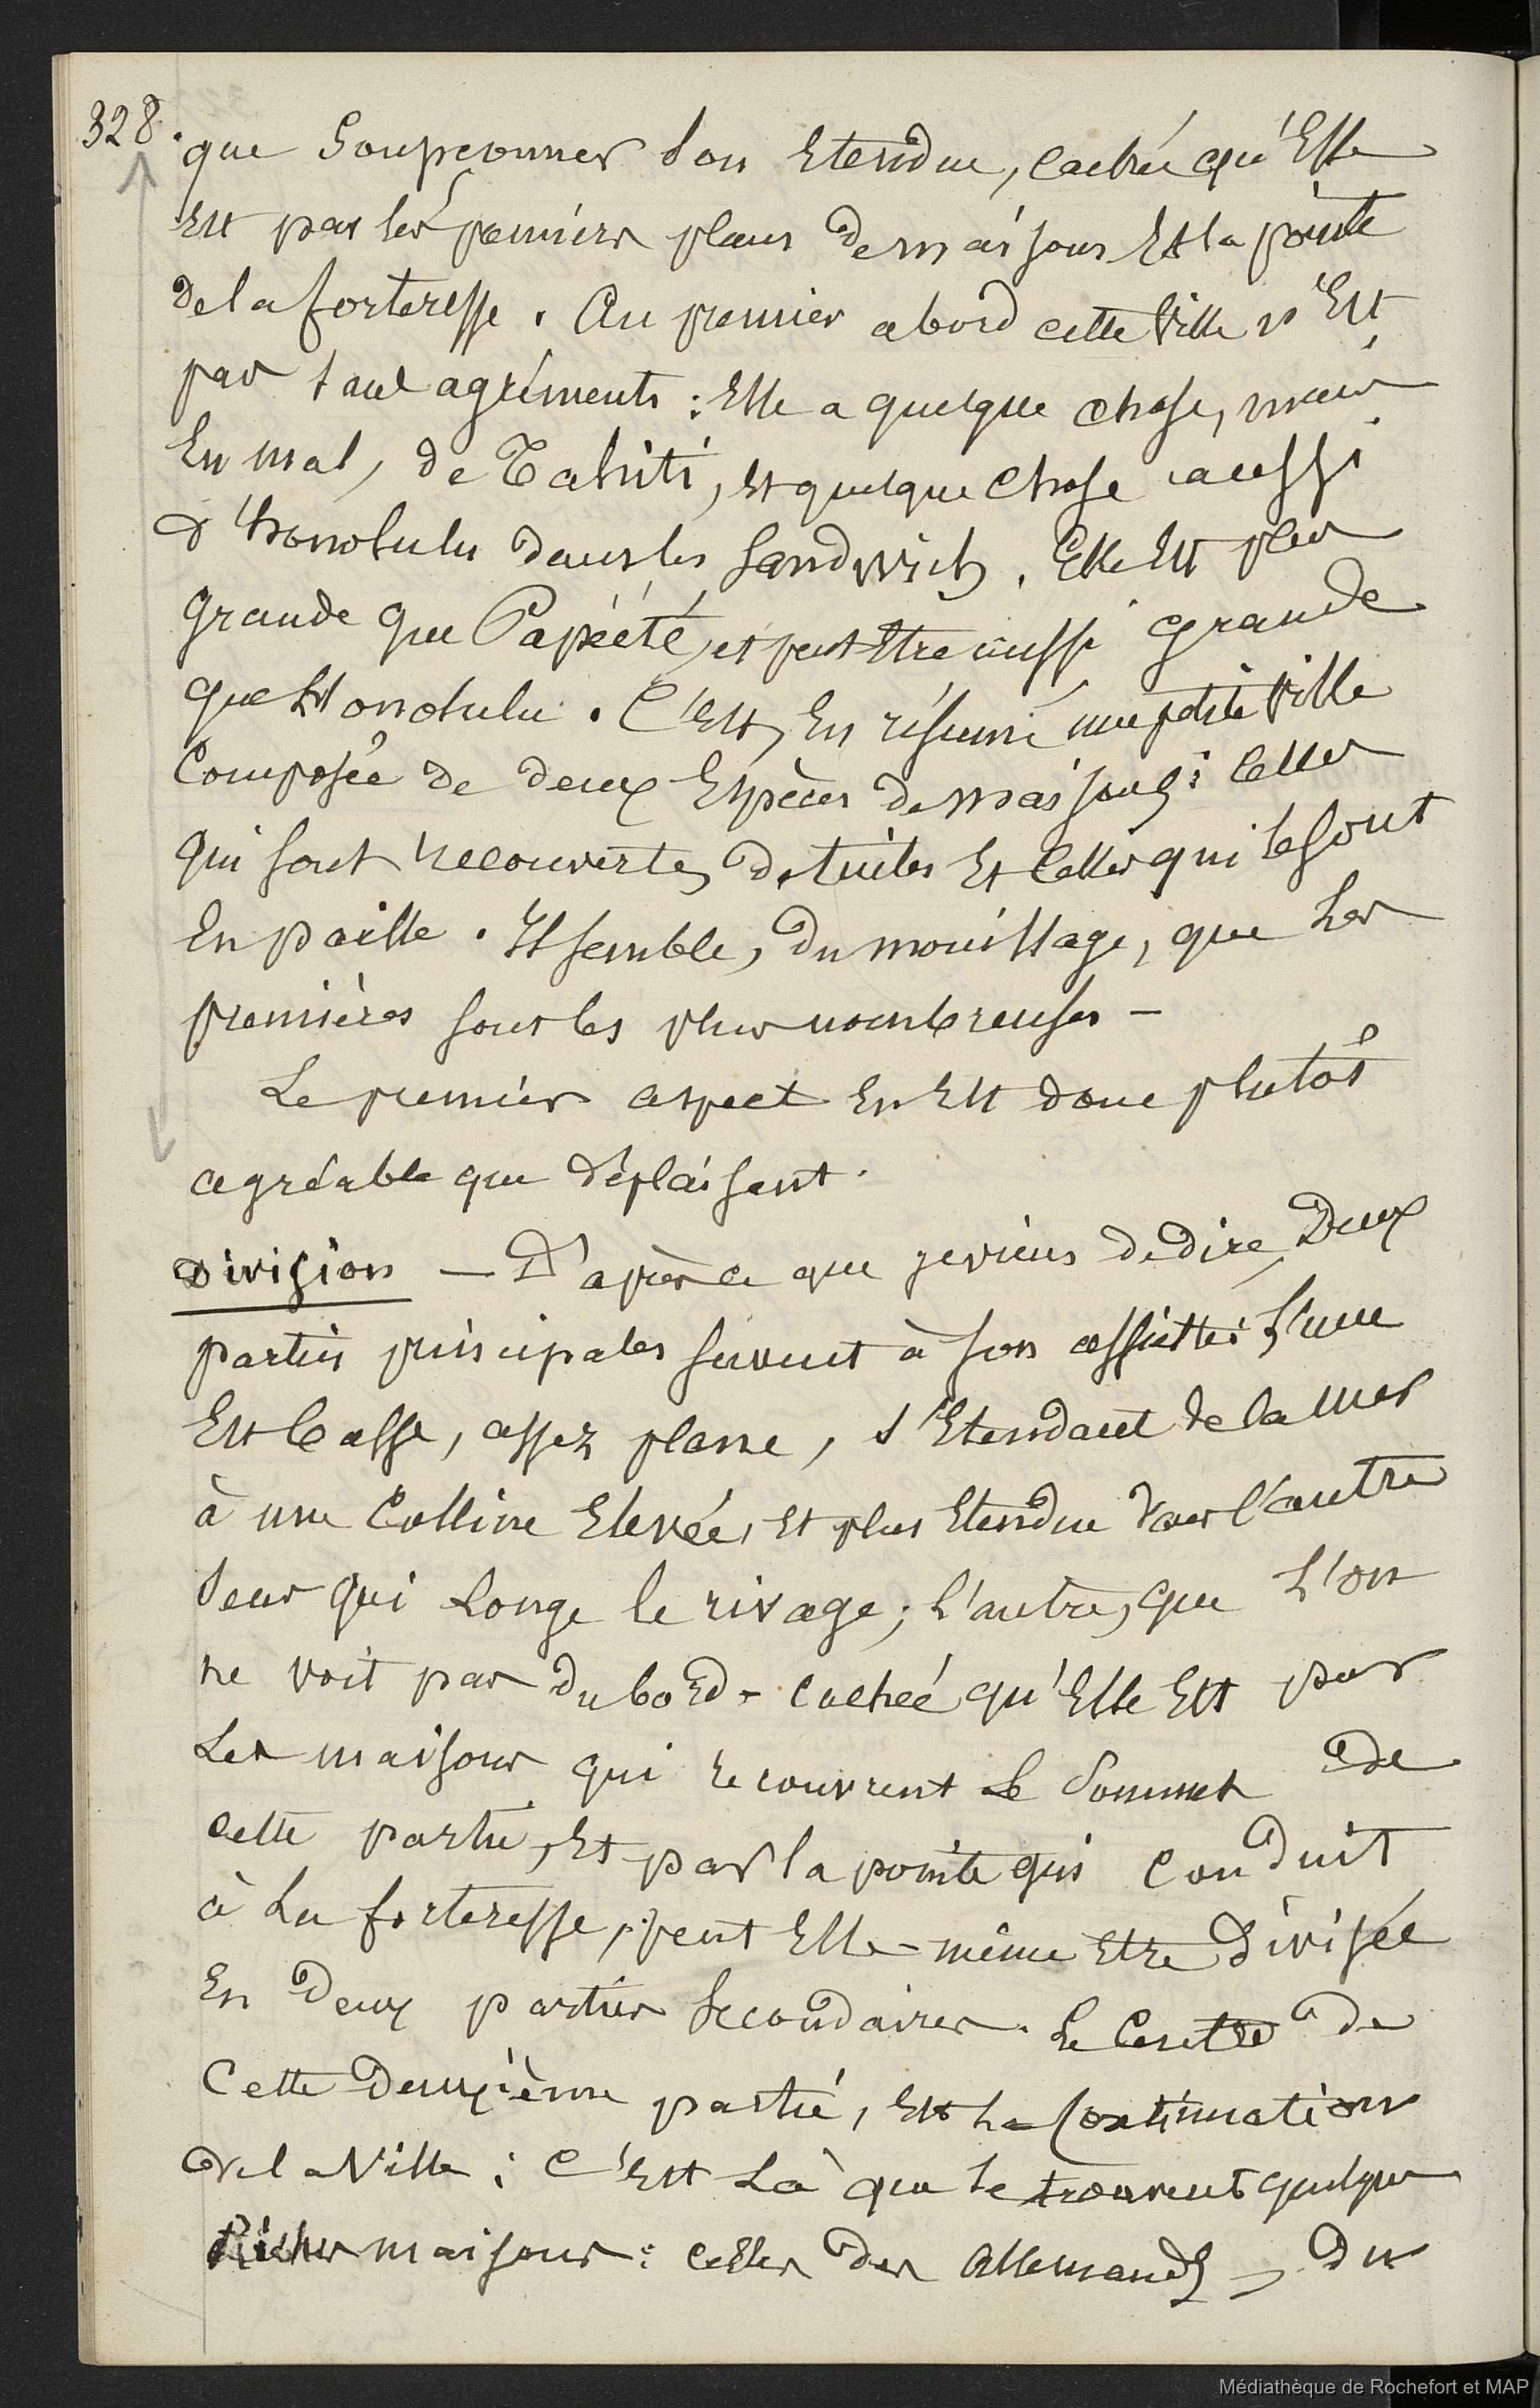 328.
que soupçonner son Etendue, cachée qu'Elle
Est par les premiers plans de maisons Et la pointe
de la forteresse. Au premier abord cette ville n'Est
pas sans agréments : Elle a quelque chose, mais
En mal, de Tahiti, Et quelque chose aussi
d'honolulu dans les Sandwich. Elle Est plus
grande que Papéété, et peut Etre aussi grande
que Honolulu. C'Est, En résumé une petite ville
Composée de deux Espèces de maisons : Celles
qui sont recouvertes de tuiles Et Celles qui le sont
En paille. Il semble, du mouillage, que Les
premières sont les plus nombreuses –
Le premier aspect En Est donc plutôt
agréable que déplaisant.
Division — D'après ce que je viens de dire, Deux
parties principales servent à son assiette : L'une
Est basse, assez plane, s'Etendant de la mer
à une Colline Elevée, Et plus Etendue dans l'autre
sens qui Longe le rivage ; L'autre, que L'on
ne voit pas du bord – cachée qu'Elle Est par
Les maisons qui recouvrent Le Sommet de
cette partie, Et par la pointe qui conduit
à La forteresse, peut Elle-même Etre divisée
En Deux parties secondaires. Le Centre de
Cette deuxième partie, Est La Continuation
de la Ville : C'Est Là que se trouvent quelques
Riches maisons : celles des Allemands, du
Médiathèque de Rochefort et MAP